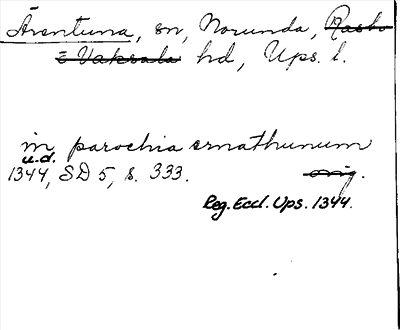 Ärentuna, sn, Norunda, Rasbo
E Vaksala hd, Ups. l.
in parochia ernathunum
u.d.
1344, SD 5, s. 333. orig.
Reg. Eccl. Ups. 1344.